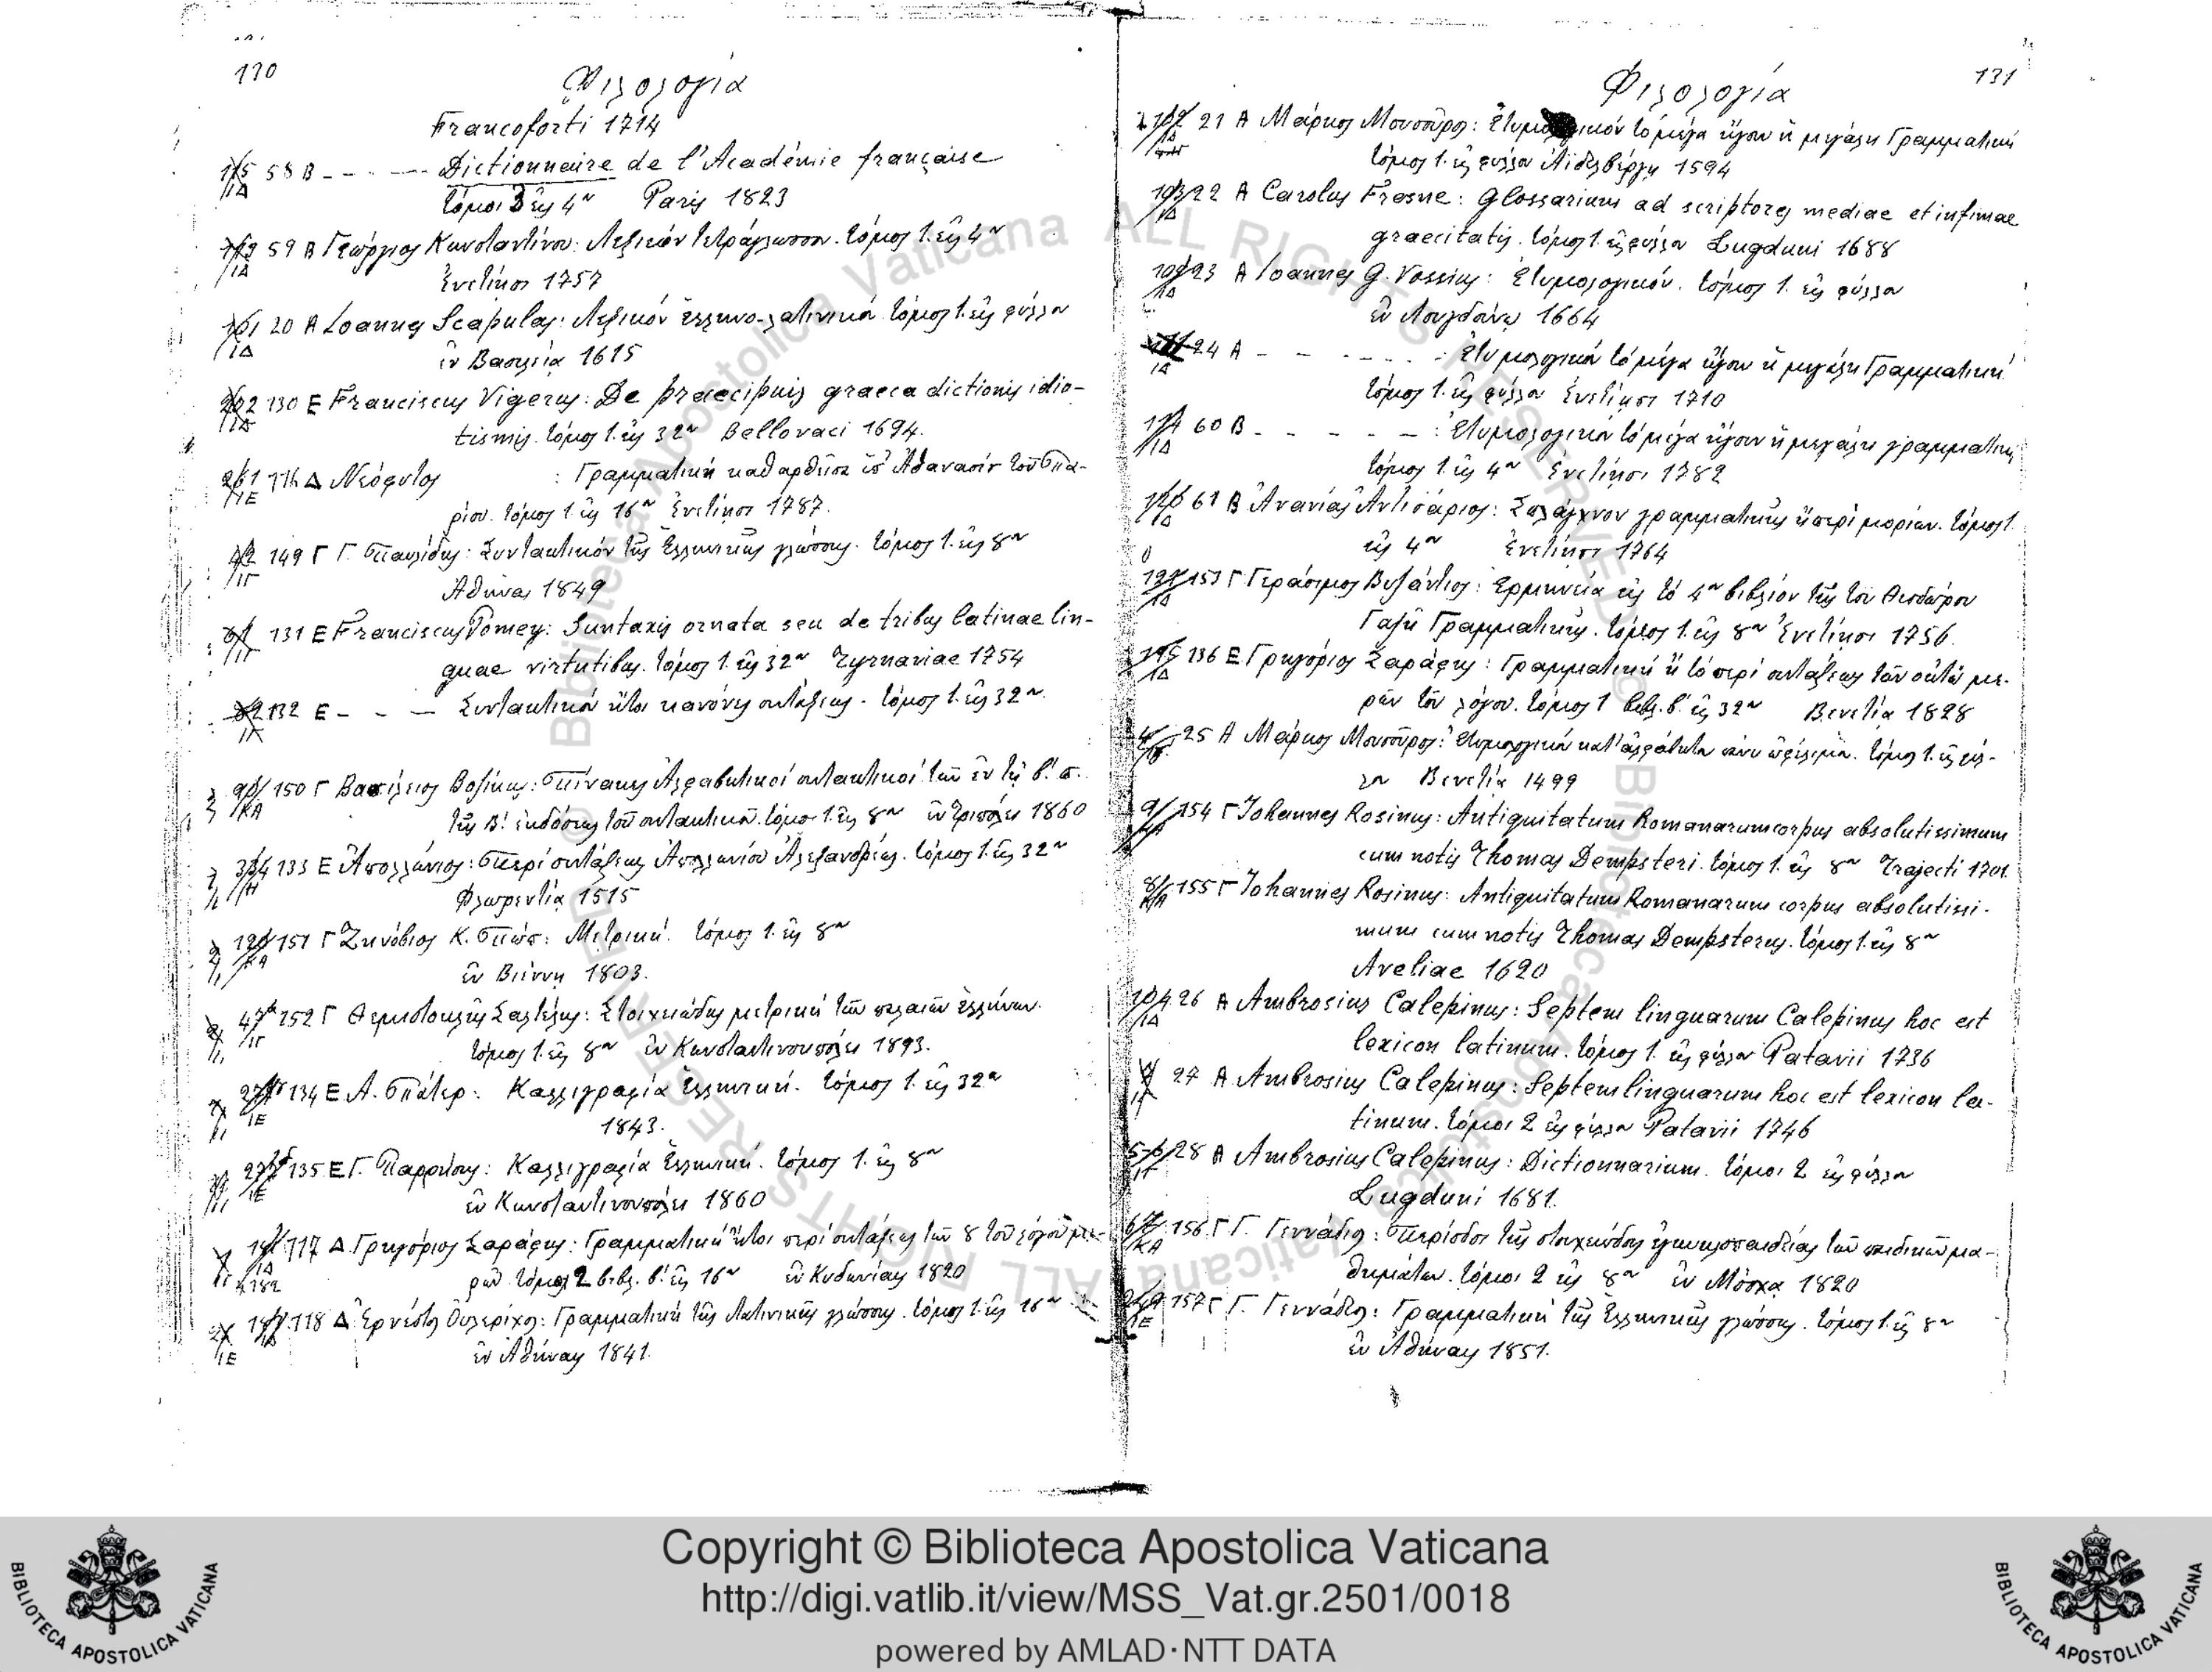 130
Φιλολογία
Francoforti 1714
58 Β - - - - Dictionnaire de l'Académie française
τόμοι 3 εἰς 4ον Paris 1823
59 Β Γεώργιος Κωνσταντίνου: Λεξικόν τετράγλωσσον. τόμος 1. εἰς 4ον
Ἐνετίησι 1757
20 Α Loannes Scapulas: Λεξικόν ἑλληνο-λατινικόν τόμος 1. εἰς φύλλον
ἐν Βασιλείᾳ 1615
130 Ε Franciscus Vigerus: De praecipuis graeca dictionis idio-
tismis. τόμος 1. εἰς 32ον Bellovaci 1694.
116 Δ Νεόφυτος : Γραμματική καθαρθεῖσα ὑπ' Ἀθανασίου τοῦ Πα-
ρίου. τόμος 1. εἰς 16ον Ἐνετίησι 1787.
149 Γ Γ. Παυλίδης: Συντακτικόν τῆς Ἑλληνικῆς γλώσσης. τόμος 1. εἰς 8ον
Ἀθῆναι 1849
131 Ε Franciscus Pomey: Suntaxis ornata seu de tribus latinae lin-
guae virtutibus. τόμος 1. εἰς 32ον Tyrnaviae 1754
132 Ε - - - Συντακτικόν ἤτοι κανόνες συντάξεως. τόμος 1. εἰς 32ον.
150 Γ Βασίλειος Βοζίκης: Πίνακες Ἀλφαβητικοί συντακτικοί τῶν ἐν τῇ β'. π.
τῆς Β' ἐκδόσεως τοῦ συντακτικοῦ. τόμος 1. εἰς 8ον ἐν Τριπόλει 1860
133 Ε Ἀπολλώνιος: Περί συντάξεως Ἀπολλωνίου Ἀλεξανδρέως. τόμος 1. εἰς 32ον
Φλωρεντίᾳ 1515
151 Γ Ζηνόβιος Κ. Πώπ: Μετρική. τόμος 1. εἰς 8ον
ἐν Βιέννῃ 1803.
152 Γ Θεμιστοκλῆς Σαλτέλης: Στοιχειώδης μετρική τῶν παλαιῶν ἑλλήνων.
τόμος 1. εἰς 8ον ἐν Κωνσταντινουπόλει 1893.
134 Ε Α. Πάτερ: Καλλιγραφία Ἑλληνική. τόμος 1. εἰς 32ον
1843.
135 Ε Γ. : Καλλιγραφία Ἑλληνική. τόμος 1. εἰς 8ον
ἐν Κωνσταντινουπόλει 1860
117 Δ Γρηγόριος Σαράφης: Γραμματική ἤτοι περί συντάξεως τῶν 8 τοῦ λόγου με-
ρῶν τόμοι 2 βιβλ. β'. εἰς 16ον ἐν Κυδωνίαις 1820
118 Δ Ἐρνέστος Οὐλερίχος: Γραμματική τῆς Λατινικῆς γλώσσης. τόμος 1. εἰς 16ον
ἐν Ἀθήναις 1841.
131
Φιλολογία
21 Α Μάρκος Μουσοῦρος: Ἐτυμολογικόν τό μέγα ἤγουν ἡ μεγάλη Γραμματική
τόμος 1. εἰς φύλλον Ἀϊδελβέργῃ 1594
22 Α Carolus Fresne: Glossarium ad scriptores mediae et infimae
graecitatis. τόμος 1. εἰς φύλλον Lugduni 1688
23 Α Ioannes G. Vossius: Ἐτυμολογικόν. τόμος 1. εἰς φύλλον
ἐν Λουγδούνῳ 1664
24 Α - - - - - - Ἐτυμολογικόν τό μέγα ἤγουν ἡ μεγάλη Γραμματική
τόμος 1. εἰς φύλλον Ἐνετίησι 1710
60 Β - - - - - : Ἐτυμολογικόν τό μέγα ἤγουν ἡ μεγάλη γραμματική
τόμος 1. εἰς 4ον Ἐνετίησι 1782
61 Β Ἀνανίας Ἀντισάριος: Σπλάγχνον γραμματικῆς ἤ περί μορίων. τόμος 1.
εἰς 4ον Ἐνετίησι 1764
153 Γ Γεράσιμος Βυζάντιος: Ἑρμηνεία εἰς τό 4ον βιβλίον τῆς τοῦ Θεοδώρου
Γαζῆ Γραμματικῆς. τόμος 1. εἰς 8ον Ἐνετίησι 1756.
136 Ε Γρηγόριος Σαράφης: Γραμματική ἤ τό περί συντάξεως τῶν ὀκτώ με-
ρῶν τοῦ λόγου. τόμος 1 βιβλ. β'. εἰς 32ον Βενετίᾳ 1828
25 Α Μάρκος Μουσοῦρος: Ἐτυμολογικόν κατ' ἀλφάβητον πάνυ ὠφέλιμον. τόμος 1. εἰς φύλ-
λον Βενετίᾳ 1499
154 Γ Johannes Rosinus: Antiquitatum Romanarum corpus absolutissimum
cum notis Thomas Dempsteri. τόμος 1. εἰς 8ον Trajecti 1701.
155 Γ Johannes Rosinus: Antiquitatum Romanarum corpus absolutissi-
mum cum notis Thomas Dempsterus. τόμος 1. εἰς 8ον
Aveliae 1620
26 Α Ambrosius Calepinus: Septem linguarum Calepinus hoc est
lexicon latinum. τόμος 1. εἰς φύλλον Patavii 1736
27 Α Ambrosius Calepinus: Septem linguarum hoc est lexicon la-
tinum. τόμοι 2 εἰς φύλλον Patavii 1746
28 Α Ambrosius Calepinus: Dictionnarium. τόμοι 2 εἰς φύλλον
Lugduni 1681.
156 Γ Γ. Γεννάδιος: Περίοδος τῆς στοιχειώδους ἐγκυκλοπαιδείας τῶν παιδικῶν μα-
θημάτων. τόμοι 2 εἰς 8ον ἐν Μόσχᾳ 1820
157 Γ Γ. Γεννάδιος: Γραμματική τῆς Ἑλληνικῆς γλώσσης. τόμος 1. εἰς 8ον
ἐν Ἀθήναις 1851.
© Biblioteca Apostolica Vaticana ALL RIGHTS RESERVED
Copyright © Biblioteca Apostolica Vaticana
http://digi.vatlib.it/view/MSS_Vat.gr.2501/0018
powered by AMLAD·NTT DATA
BIBLIOTECA APOSTOLICA VATICANA
BIBLIOTECA APOSTOLICA VATICANA